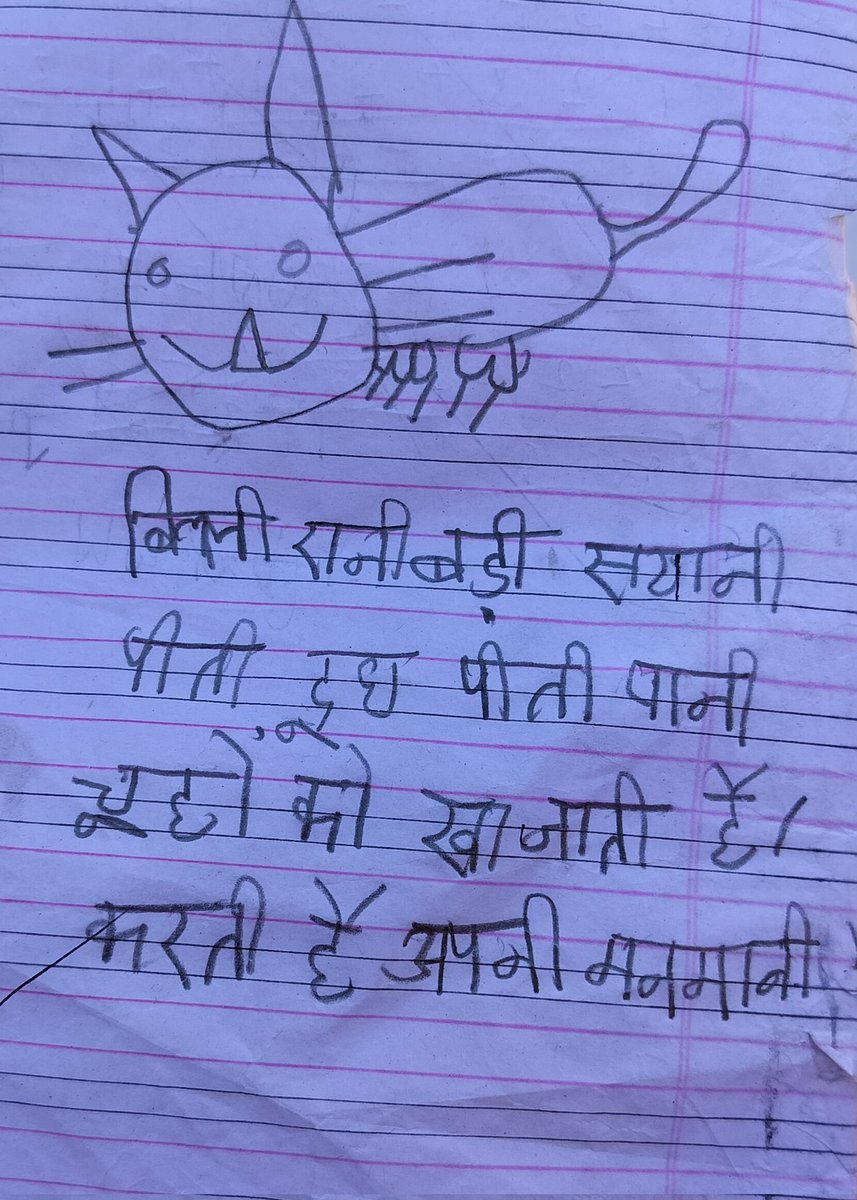 बिल्ली रानी बड़ी सयानी
पीती दूध पीती पानी
चूहों को खा जाती है।
करती है अपनी मनमानी